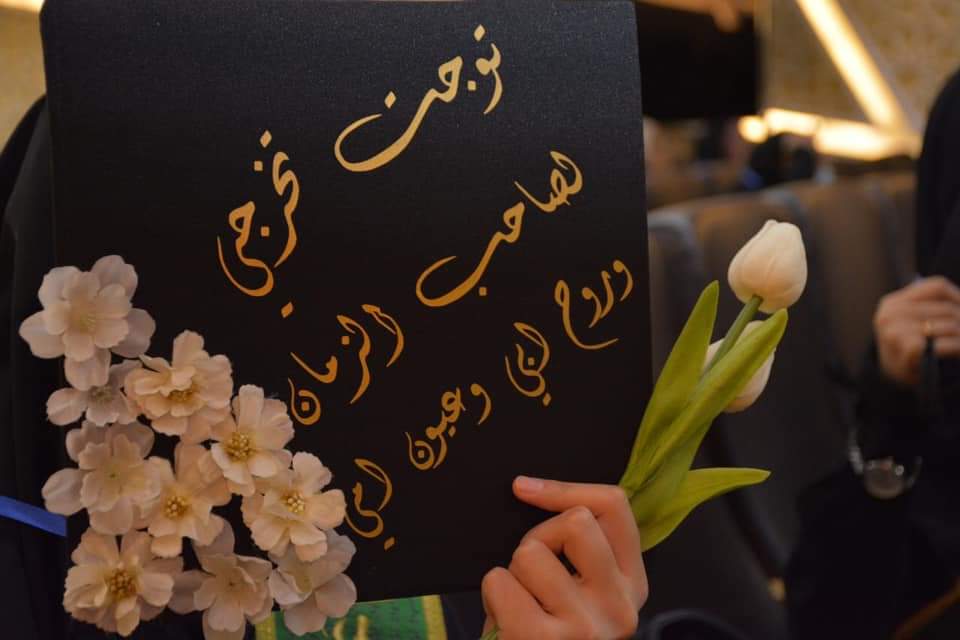 توجت تخرجي
لصاحب الزمان
وروح ابي وعيون امي